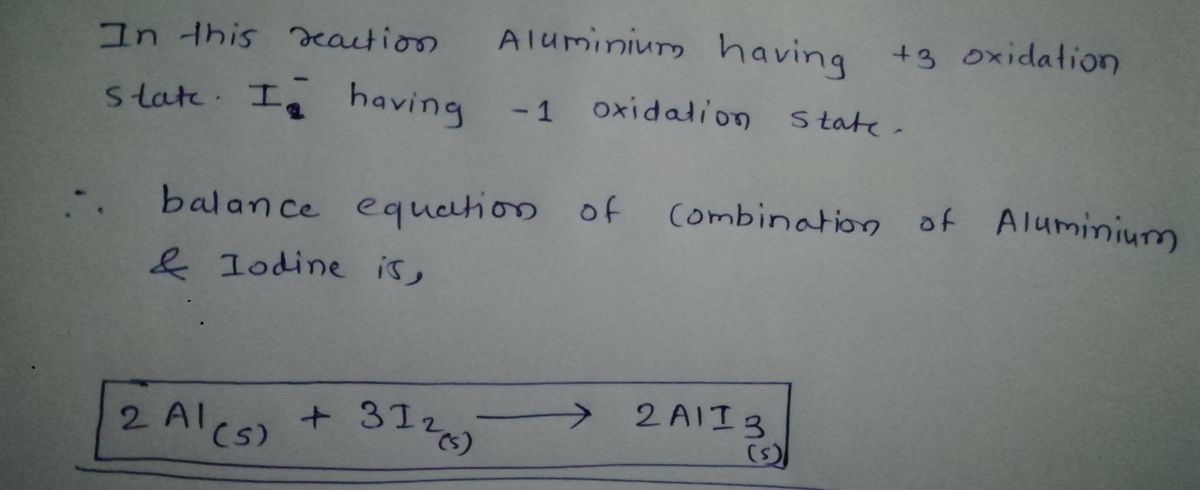 In this reaction Aluminium having +3 oxidation
state. I⁻ having -1 oxidation state.
∴ balance equation of combination of Aluminium
& Iodine is,
2 Al(s) + 3I₂(s) ⟶ 2 AlI₃(s)